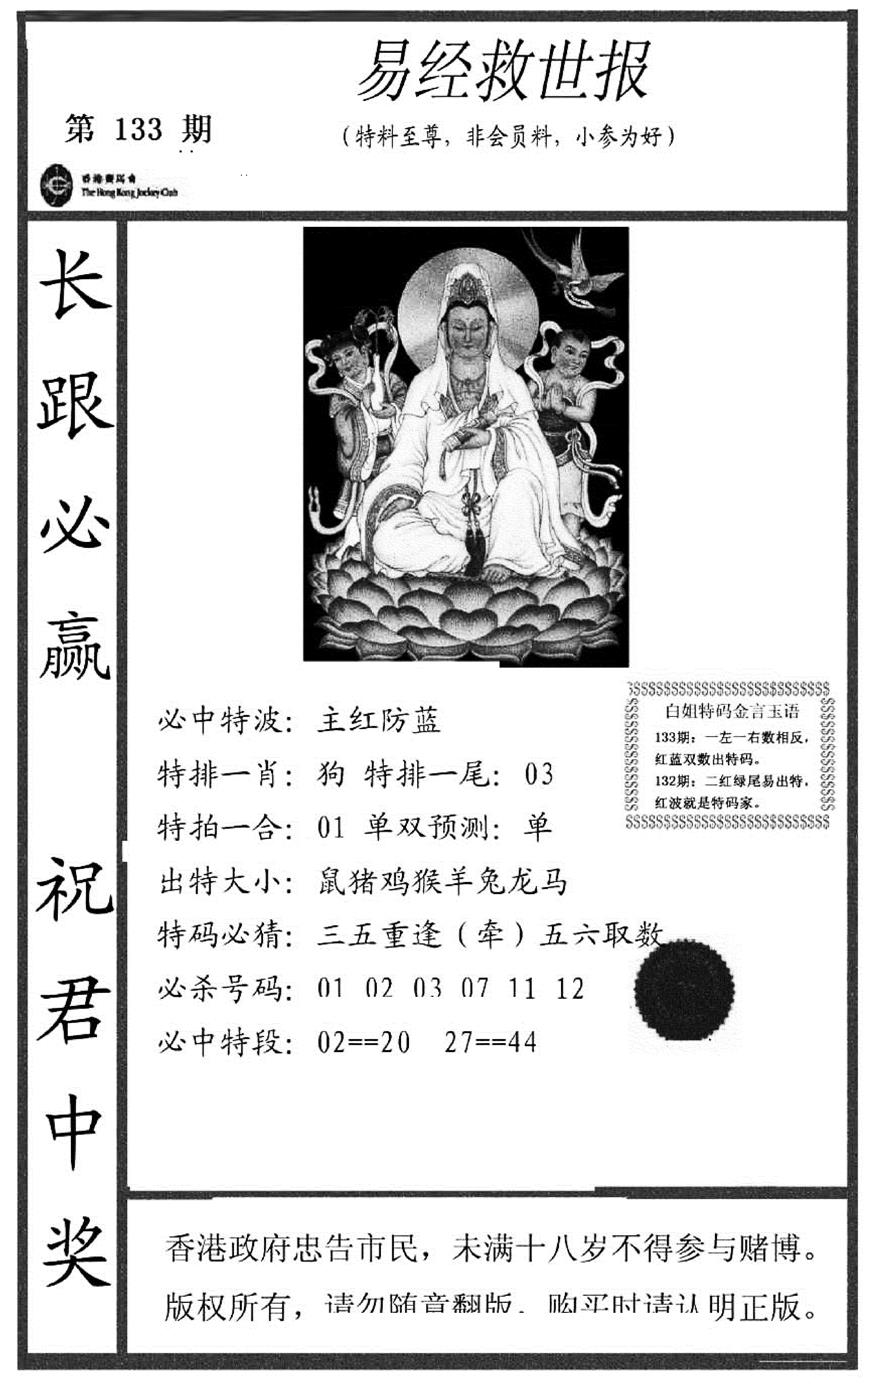 易经救世报
第 133 期
（特料至尊，非会员料，小参为好）
香港賽馬會
The Hong Kong Jockey Club
长跟必赢 祝君中奖
必中特波：主红防蓝
特排一肖：狗 特排一尾：03
特拍一合：01 单双预测：单
出特大小：鼠猪鸡猴羊兔龙马
特码必猜：三五重逢（牵）五六取数
必杀号码：01 02 03 07 11 12
必中特段：02==20 27==44
$$$$$$$$$$$$$$$$$$$$$$$$$$$$
白姐特码金言玉语
133期：一左一右数相反，
红蓝双数出特码。
132期：二红绿尾易出特，
红波就是特码家。
$$$$$$$$$$$$$$$$$$$$$$$$$$$$
香港政府忠告市民，未满十八岁不得参与赌博。
版权所有，请勿随意翻版．购买时请认明正版。